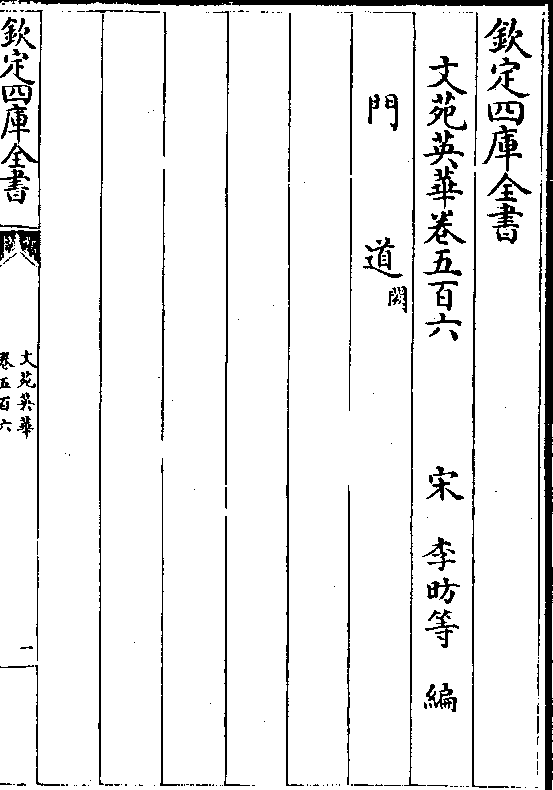 欽定四庫全書
文苑英華卷五百六　宋　李昉等　編
門　道闕
欽定四庫全書
文苑英華
卷五百六
一